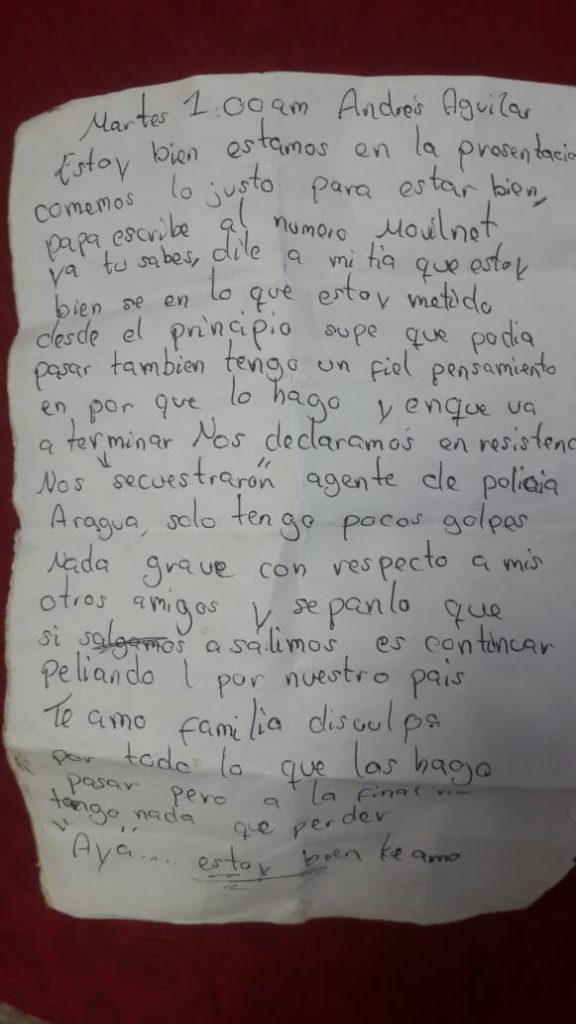 Martes 1:00am Andrés Aguilar
Estoy bien estamos en la presentacio
comemos lo justo para estar bien,
papa escribe al numero Movilnet
ya tu sabes, dile a mi tia que estoy
bien se en lo que estoy metido
desde el principio supe que podia
pasar tambien tengo un fiel pensamiento
en por que lo hago y enque va
a terminar Nos declaramos en resistenc
Nos "secuestrarón" agente de policia
Aragua, solo tengo pocos golpes
Nada grave con respecto a mis
otros amigos y sepanlo que
si salgamos a salimos es continuar
peliando por nuestro pais
Te amo familia disculpa
por todo lo que las hago
pasar pero a la final
tengo nada que perder
"Aya".... estoy bien te amo